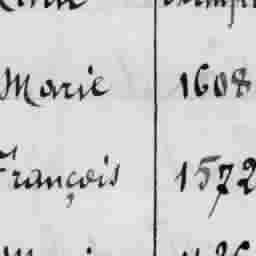 Marie 1608
François 1572